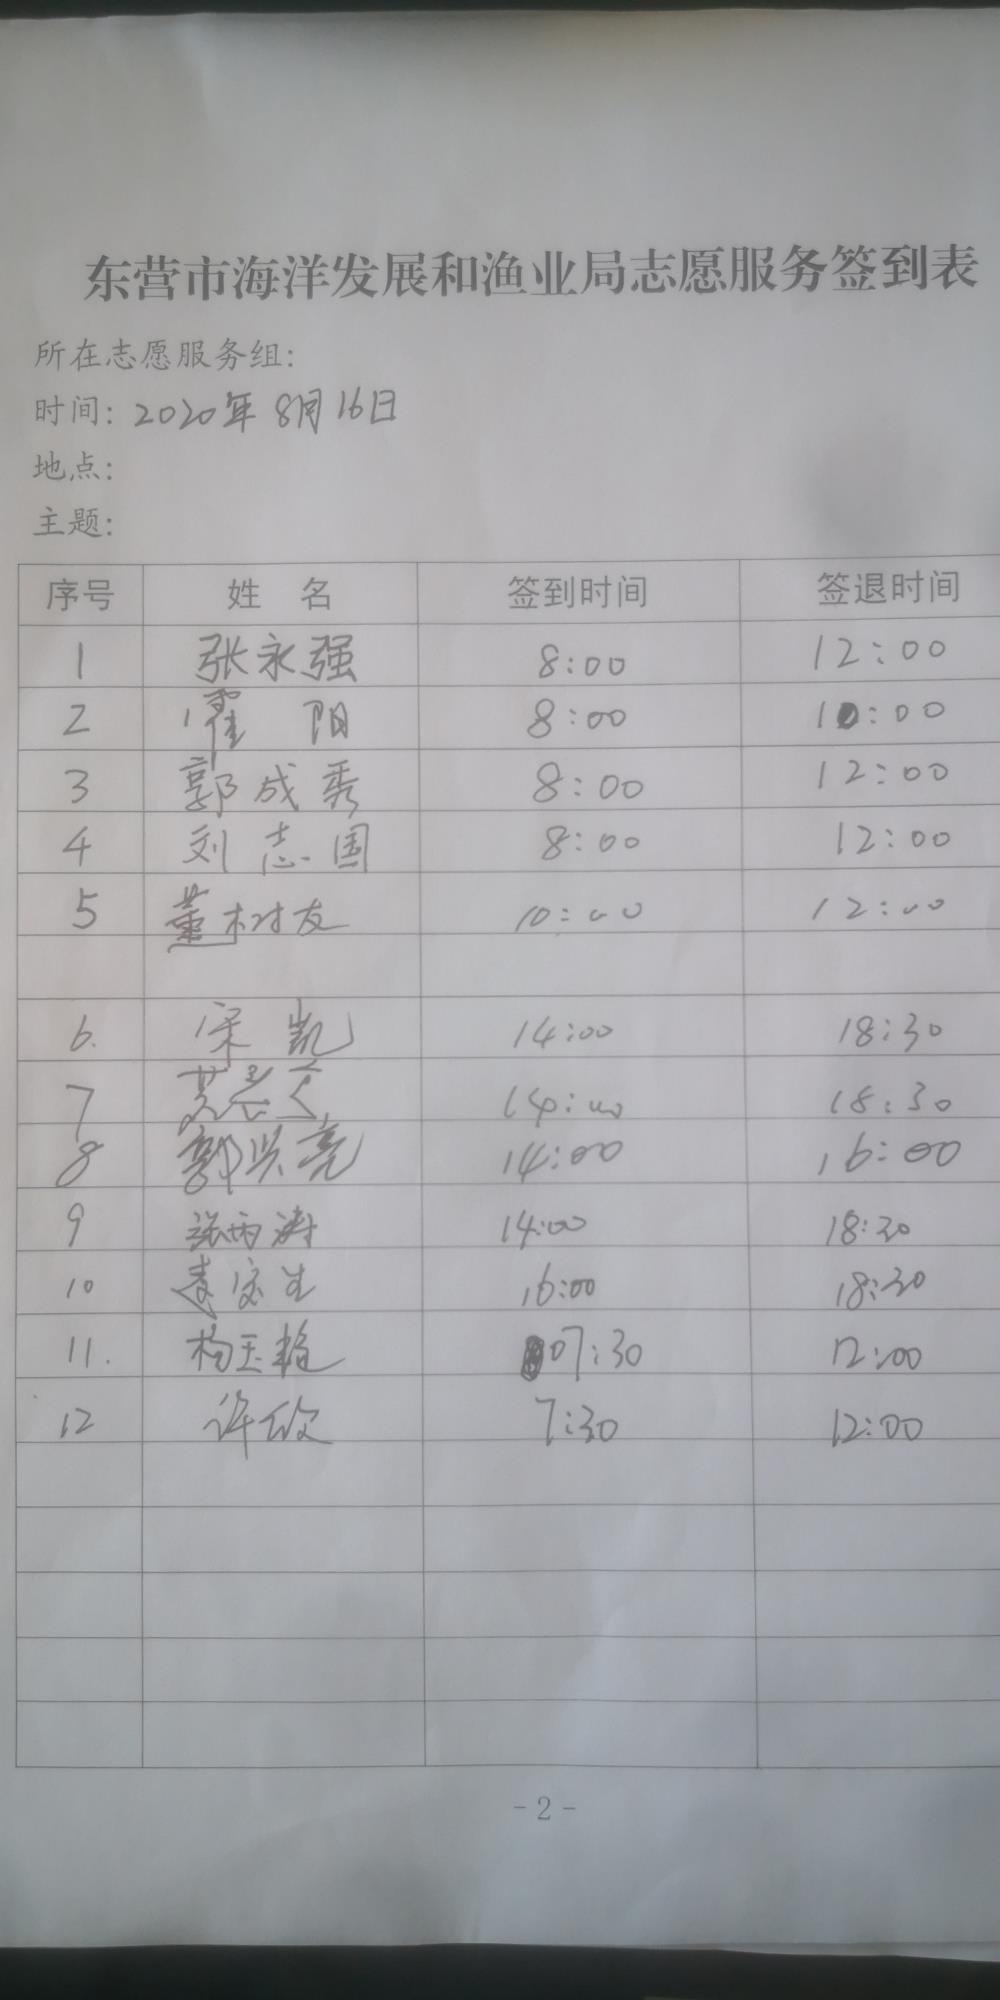 东营市海洋发展和渔业局志愿服务签到表
所在志愿服务组:
时间: 2020年8月16日
地点:
主题:
序号 姓名 签到时间 签退时间
1 张永强 8:00 12:00
2 霍阳 8:00 10:00
3 郭成秀 8:00 12:00
4 刘志国 8:00 12:00
5 董树友 10:00 12:00
6. 宋凯 14:00 18:30
7 14:00 18:30
8 郭兴亮 14:00 16:00
9 张雨涛 14:00 18:30
10 16:00 18:30
11. 杨玉艳 07:30 12:00
12 许欣 7:30 12:00
- 2 -